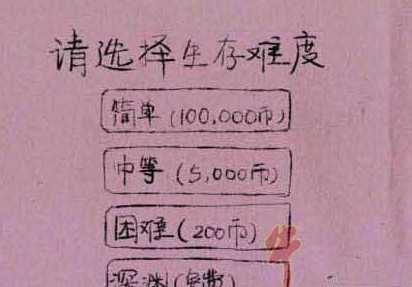 请选择生存难度
简单(100,000币)
中等(5,000币)
困难(200币)
深渊(免费)